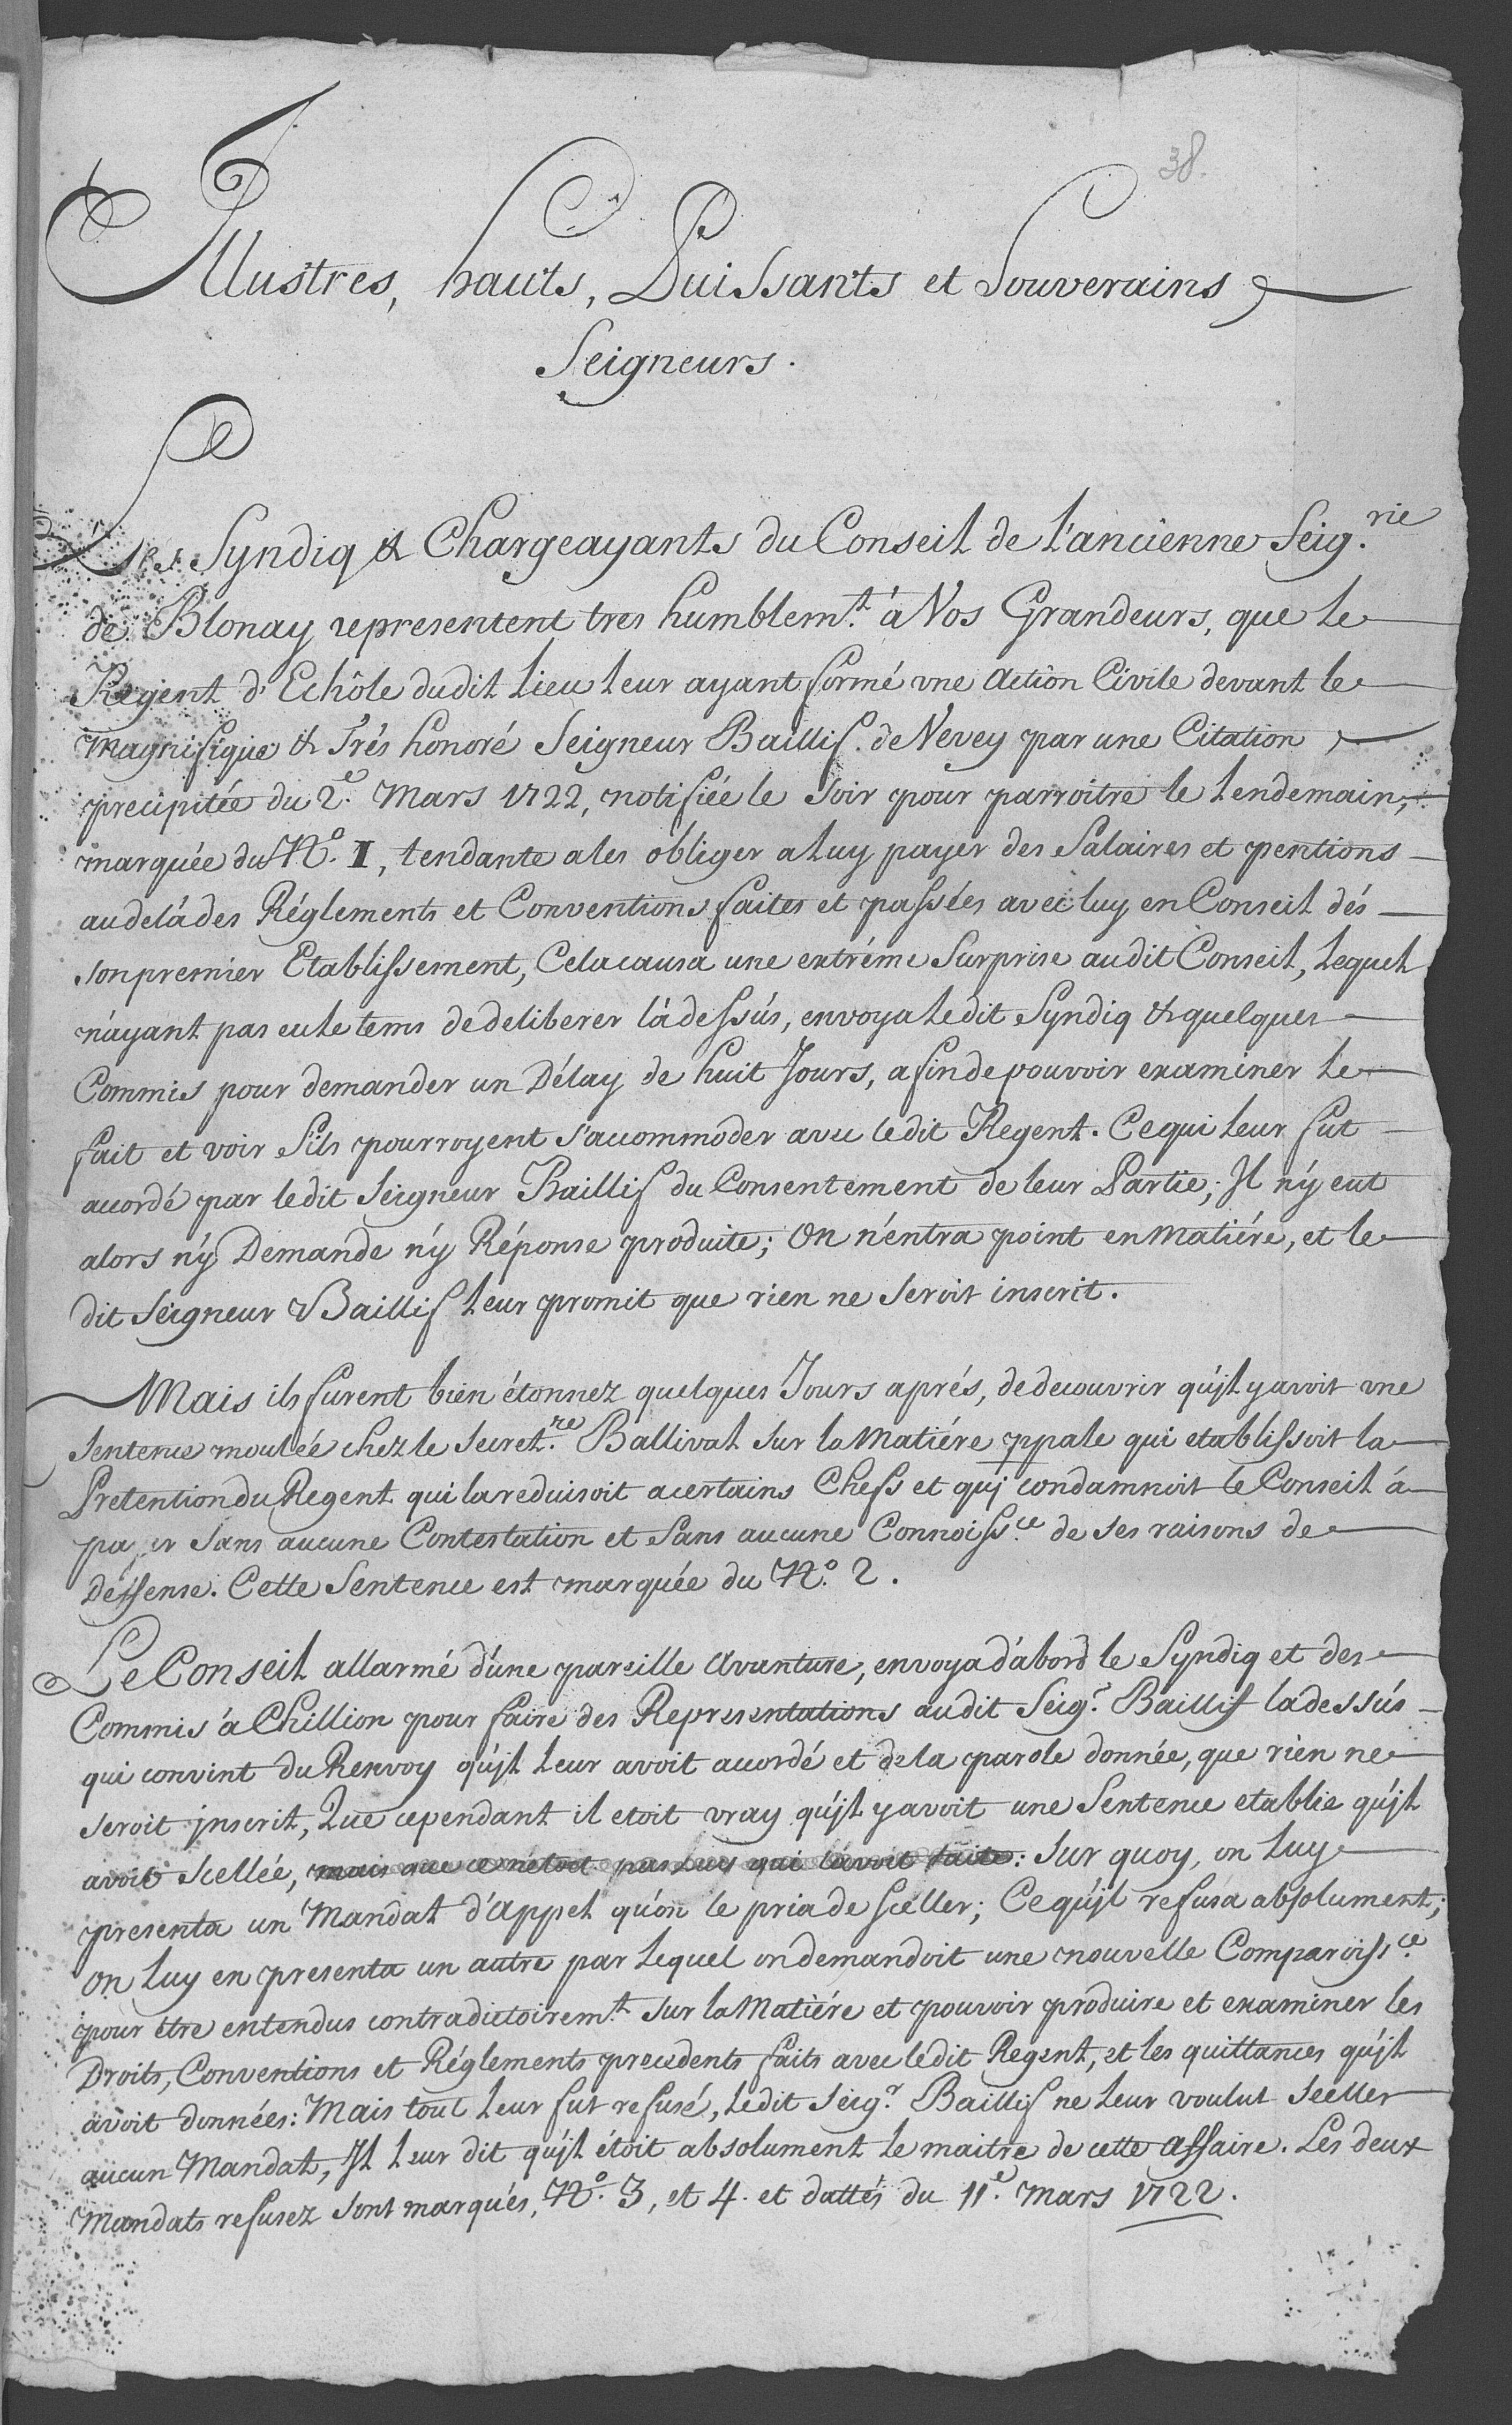 38.
Illustres, hauts, Puissants et Souverains
Seigneurs.
Les Syndiq & Chargeayants du Conseil de l'ancienne Seig.rie
de Blonay representent tres humblem.t à Vos Grandeurs, que le
Regent d'Echôle dudit Lieu leur ayant formé une Action Civile devant le
Magnifique & Trés honoré Seigneur Baillif de Vevey par une Citation
precipitée du 2.e Mars 1722, notifiée le Soir pour parroitre le Lendemain,
marquée du N.o I, tendante a les obliger a Luy payer des Salaires et pentions
au delà des Réglements et Conventions faites et passées avec luy en Conseil dés
son premier Etablissement, Cela causa une extréme Surprise au dit Conseil, Lequel
n'ayant pas eu le tems de deliberer là dessús, envoya Ledit Syndiq & quelques
Commis pour demander un Délay de huit Jours, afin de pouvoir examiner le
fait et voir S'ils pourroyent s'accommoder avec ledit Regent. Ce qui leur fut
accordé par ledit Seigneur Baillif du Consentement de leur Partie; Il n'y eut
alors n'y Demande n'y Réponse produite; On n'entra point en Matiére, et le
dit Seigneur Baillif Leur promit que rien ne Seroit inscrit.
Mais ils furent bien étonnez quelques Jours aprés, de decouvrir qu'jl y avoit une
Sentence moulée chez le Secret.re Ballival Sur la Matiére ppale qui etablissoit la
Pretention du Regent qui la reduisoit a certains Chefs et quj condamnoit le Conseil à
payer Sans aucune Contestation et Sans aucune Connoiss.ce de ses raisons de
Deffense. Cette Sentence est marquée du N.o 2.
Le Conseil allarmé d'une pareille Avanture, envoya d'abord le Syndiq et des
Commis à Chillion pour faire des Representations audit Seig.r Baillif ladessús
qui convint du Renvoy qu'jl Leur avoit accordé et de la parole donnée, que rien ne
seroit jnscrit, Que cependant il etoit vray qu'jl y avoit une Sentence etablie qu'jl
avoit Scellée, mais que ce n'etoit pas Luy qui l'avoit faite: Sur quoy, on Luy
presenta un Mandat d'Appel qu'on le pria de Sceller; Ce qu'jl refusa absolument;
On Luy en presenta un autre par Lequel on demandoit une nouvelle Comparoiss.ce
pour être entendus contradictoirem.t Sur la Matiére et pouvoir produire et examiner les
Droits, Conventions et Réglements precedents faits avec ledit Regent, et les quittances qu'jl
avoit données: Mais tout Leur fut refusé, Ledit Seig.r Baillif ne Leur voulut Sceller
aucun Mandat, Jl Leur dit qu'jl étoit absolument le maitre de cette affaire. Les deux
Mandats refusez Sont marqués, N.o 3, et 4. et dattés du 11.e Mars 1722.